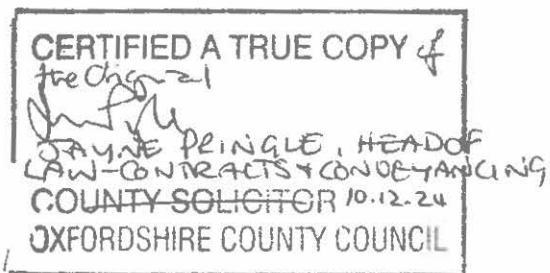 CERTIFIED A TRUE COPY of
the Original
JAYNE PRINGLE, HEAD OF
LAW-CONTRACTS & CONVEYANCING
COUNTY SOLICITOR 10.12.24
OXFORDSHIRE COUNTY COUNCIL